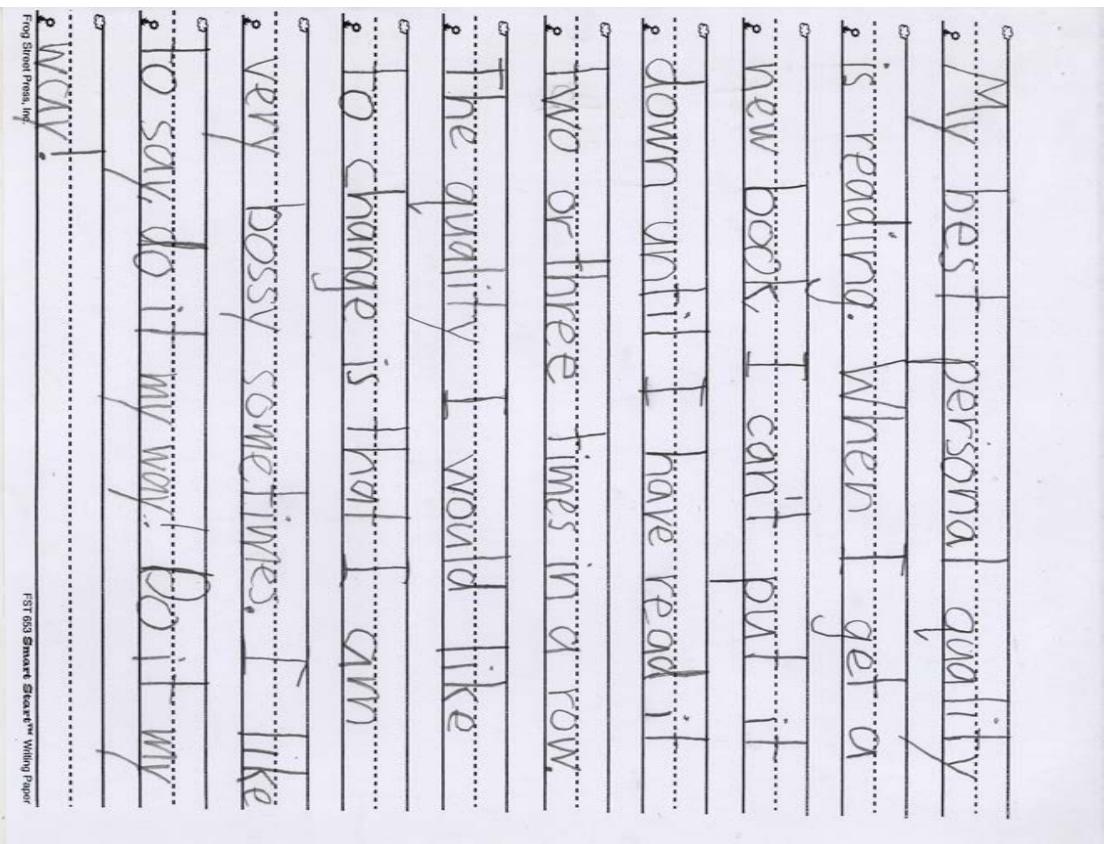 My best personal quality
is reading. When I get a
new book I can't put it
down until I have read it
two or three times in a row.
The quality I would like
to change is that I am
very bossy sometimes. I like
to say, do it my way! Do it my
way!
Frog Street Press, Inc. FST 653 Smart Start™ Writing Paper